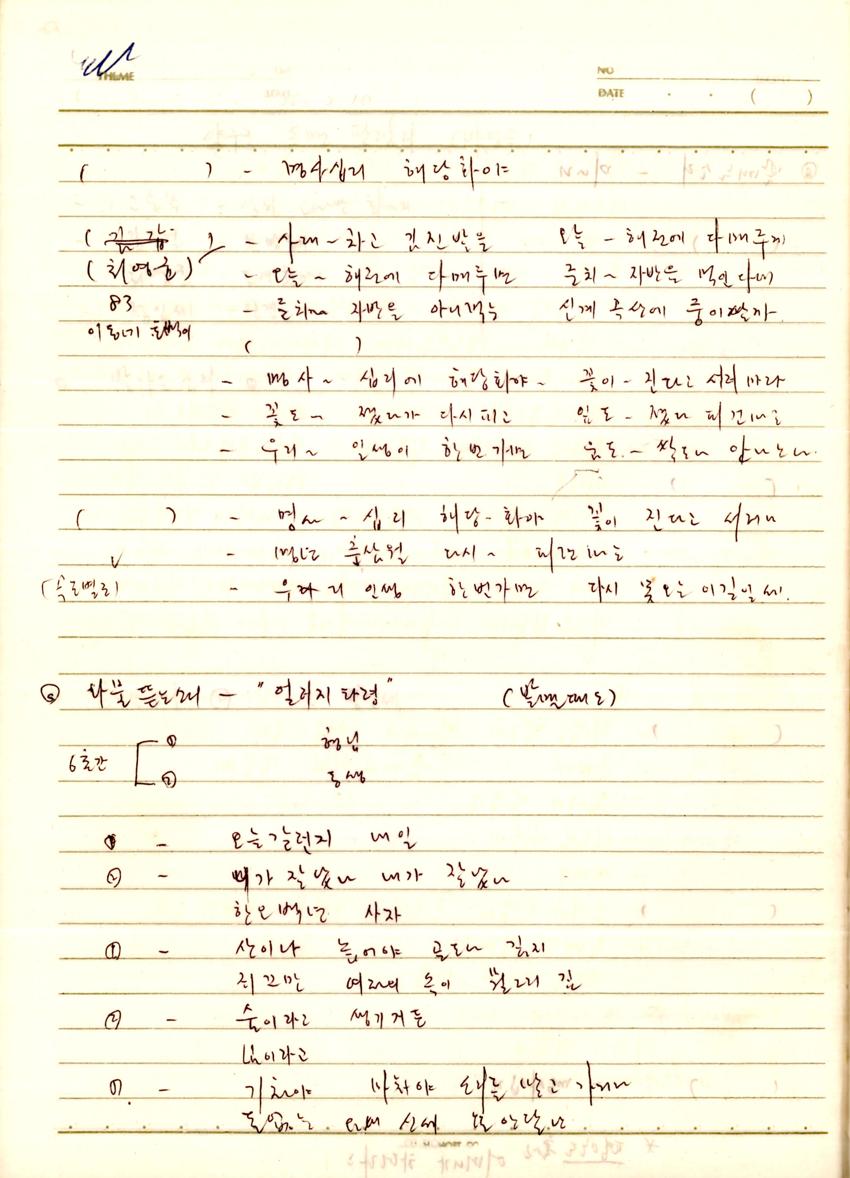 THEME
NO
DATE . . ( )
( ) - 명사십리 해당화야
(김 강 ) - 사래 ~ 차고 김진밭을 오늘 - 해전에 다매루제
(최영호) - 오늘 ~ 해전에 다매루면 준치 ~ 자반을 먹인다네
83 - 준치 ~ 자반을 아니먹는 신계 곡산에 중이
( )
- 명사 ~ 십리에 해당화야 ~ 꽃이 - 진다고 서러마라
- 꽃도 ~ 졌다가 다시피고 잎도 - 졌다 피건마는
- 우리 ~ 인생이 한번가면 움도 - 싹도나 안나노나
( ) - 명사 ~ 십리 해당 - 화야 꽃이 진다고 서러마
- 명년 춘삼월 다시 ~ 피건마는
- 우리 인생 한번가면 다시 못오는 이길일세.
⑤ 나물 뜯는소리 - "얼러지 타령" ( )
① 형님
6호간
② 동생
① - 오늘갈런지 내일
② - 네가 잘났나 내가 잘났나
한오백년 사자
① - 산이나 높어야 골도나 깊지
쥐꼬만 여자의 속이 깊
② - 술이라고 생기거든
님이라고
① - 기차야 마차야 소리를 말고 가거라
돈없는 신세